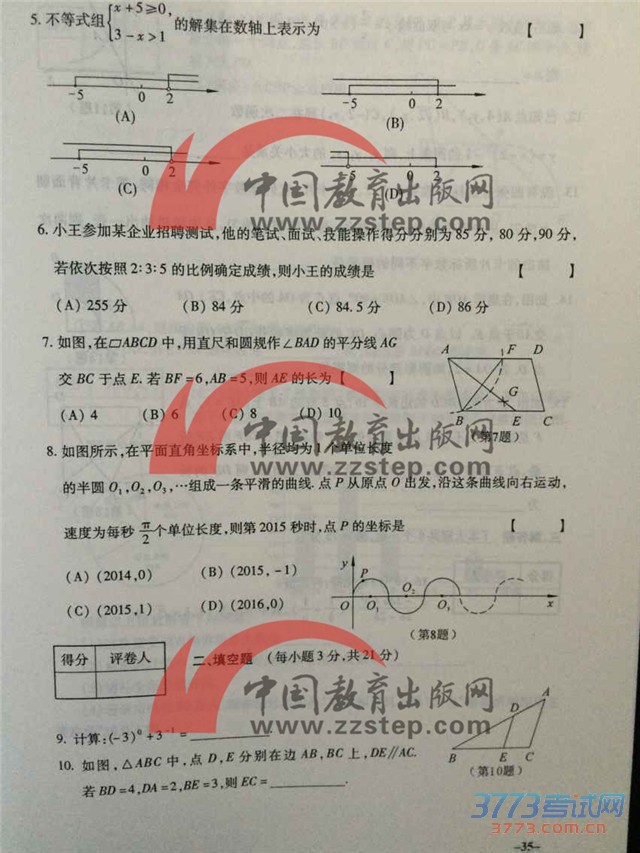 5. 不等式组{x+5≥0, 3-x>1 的解集在数轴上表示为 【 】
-5 0 2 -5 0 2
(A) (B)
-5 0 2 -5 0 2
(C) (D)
中国教育出版网
www.zzstep.com
6. 小王参加某企业招聘测试,他的笔试、面试、技能操作得分分别为 85 分, 80 分,90 分,
若依次按照 2:3:5 的比例确定成绩,则小王的成绩是 【 】
(A) 255 分 (B) 84 分 (C) 84.5 分 (D) 86 分
7. 如图,在▱ABCD 中,用直尺和圆规作∠BAD 的平分线 AG
交 BC 于点 E. 若 BF=6,AB=5,则 AE 的长为【 】
(A) 4 (B) 6 (C) 8 (D) 10
A F D
G
B E C
(第7题)
中国教育出版网
www.zzstep.com
8. 如图所示,在平面直角坐标系中,半径均为 1 个单位长度
的半圆 O₁,O₂,O₃,…组成一条平滑的曲线. 点 P 从原点 O 出发,沿这条曲线向右运动,
速度为每秒 π/2 个单位长度,则第 2015 秒时,点 P 的坐标是 【 】
(A) (2014,0) (B) (2015,-1)
(C) (2015,1) (D) (2016,0)
y
P
O₂
O O₁ O₃ x
(第8题)
得分 评卷人
二、填空题 (每小题 3 分,共 21 分)
中国教育出版网
www.zzstep.com
9. 计算:(-3)⁰+3⁻¹=
10. 如图,△ABC 中,点 D,E 分别在边 AB,BC 上,DE∥AC.
若 BD=4,DA=2,BE=3,则 EC= .
A
D
B E C
(第10题)
3773考试网
www.3773.com.cn
—35—